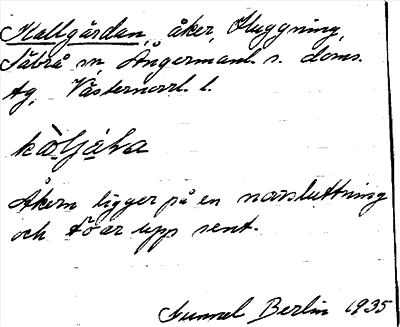 Kallgärdan, åker, Huggning,
Säbrå sn, Ångermanl. s. doms.
tg, Västernorrl. l.
Åkern ligger på en norrsluttning
och töar upp sent.
Gunnel Berlin 1935